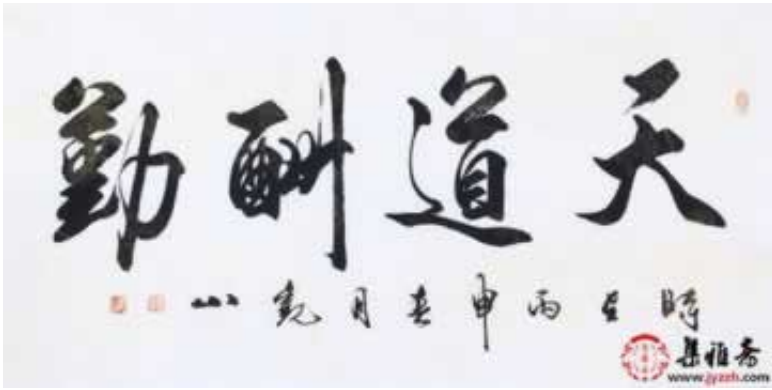 天道酬勤
時在丙申春月觉山
集雅斋
www.jyzzh.com